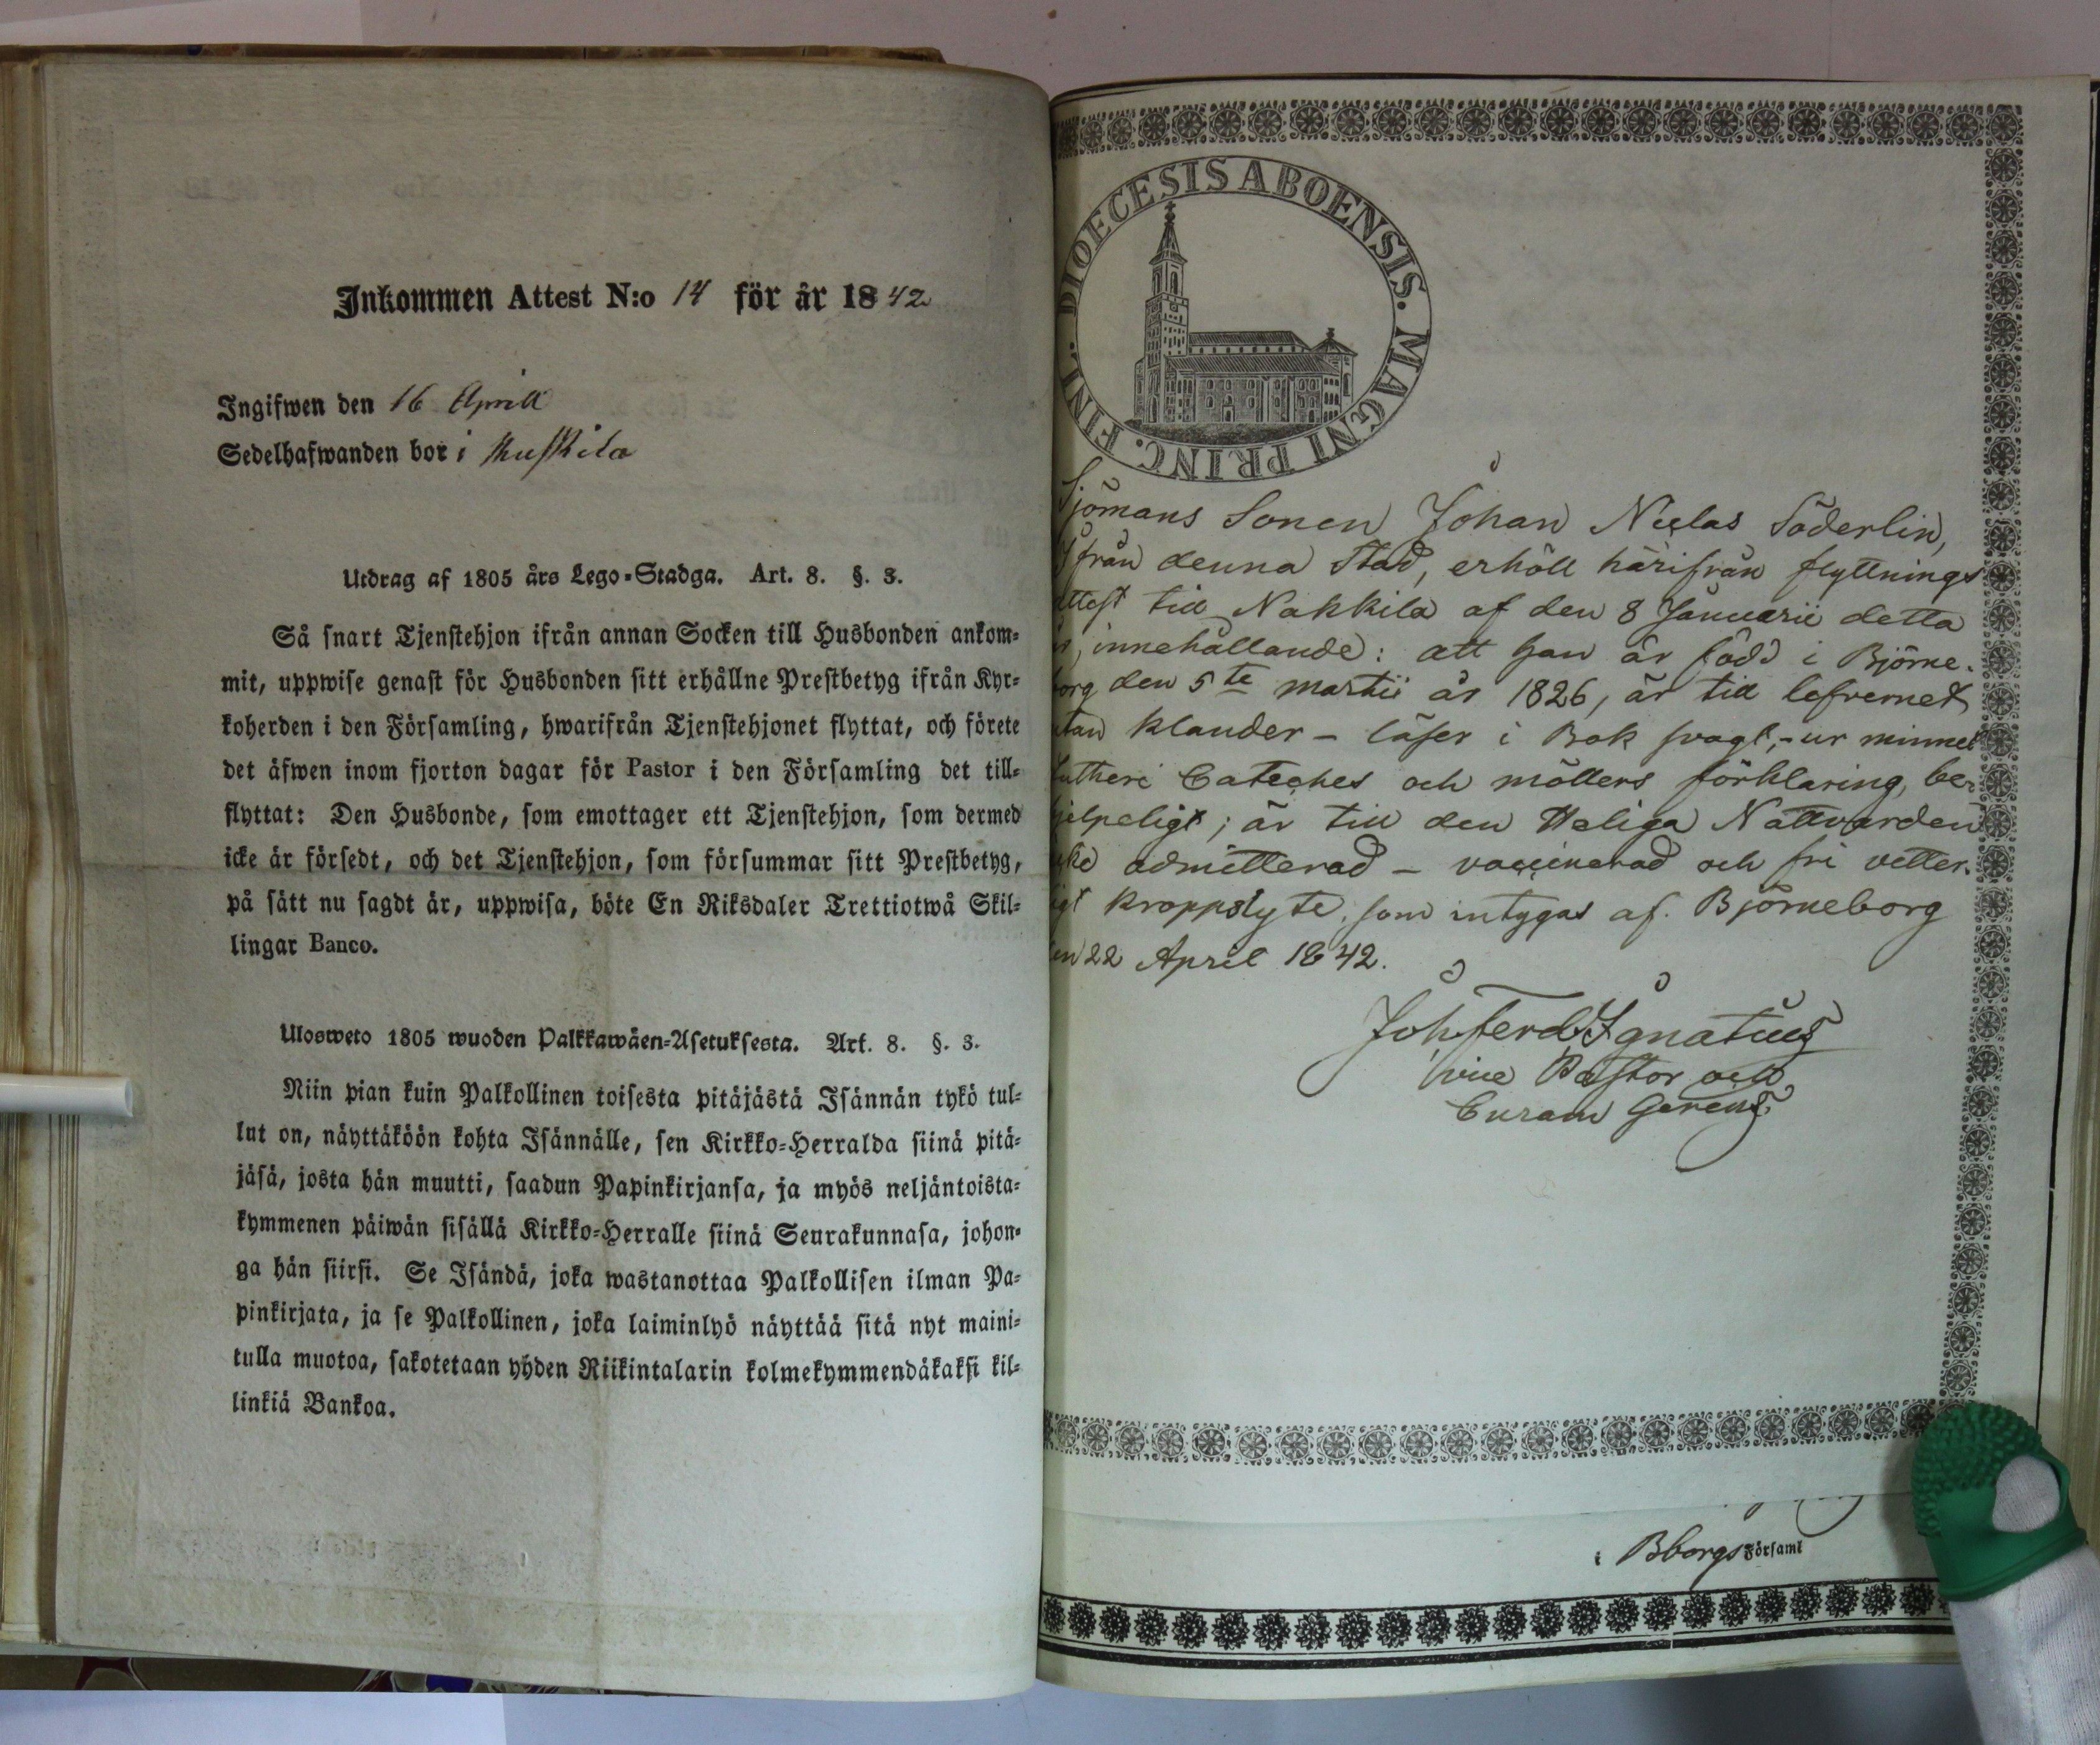 Inkommen Attest N:o 14 för år 1842
Ingifwen den 16 Aprill
Sedelhafwanden bor i
Utdrag af 1805 års Lego-Stadga. Art. 8. §. 3.
Så snart Tjenstehjon ifrån annan Socken till Husbonden ankom-
mit, uppwise genast för Husbonden sitt erhållne Prestbetyg ifrån Kyr-
koherden i den Församling, hwarifrån Tjenstehjonet flyttat, och förete
det äfwen inom fjorton dagar för Pastor i den Församling det till-
flyttat: Den Husbonde, som emottager ett Tjenstehjon, som dermed
icke är försedt, och det Tjenstehjon, som försummar sitt Prestbetyg,
på sätt nu sagdt är, uppwisa, böte En Riksdaler Trettiotwå Skil-
lingar Banco.
Ulosweto 1805 wuoden Palkkawäen-Asetuksesta. Art. 8. §. 3.
Niin pian kuin Palkollinen toisesta pitäjästä Isännän tykö tul-
lut on, näyttäköön kohta Isännälle, sen Kirkko-Herralda siinä pitä-
jäsä, josta hän muutti, saadun Papinkirjansa, ja myös neljäntoista-
kymmenen päiwän sisällä Kirkko-Herralle siinä Seurakunnasa, johon-
ga hän siirsi. Se Isändä, joka wastanottaa Palkollisen ilman Pa-
pinkirjata, ja se Palkollinen, joka laiminlyö näyttää sitä nyt maini-
tulla muotoa, sakotetaan yhden Riikintalarin kolmekymmendäkaksi kil-
linkiä Bankoa.
DIOECESIS ABOENSIS. MAGNI PRINC. FINL.
Sjömans Sonen Johan Niclas Söderlin,
ifrån denna Stad, erhöll härifrån flyttnings
attest till Nakkila af den 8 Januarii detta
år, innehållande: att han är född i Björne-
borg den 5te Martii år 1826, är till lefvernet
utan klander - läser i Bok svagt, - ur minnet
Lutheri Cateches och Möllers förklaring, be-
hjelpeligt; är till den Heliga Nattvarden
icke admitterad - vaccinerad och fri vetter-
ligt kroppslyte, som intygas af. Björneborg
den 22 April 1842.
Joh. Ferd. Ignatius
vice Pastor och
Curam Gerens.
i Bborgs Församl